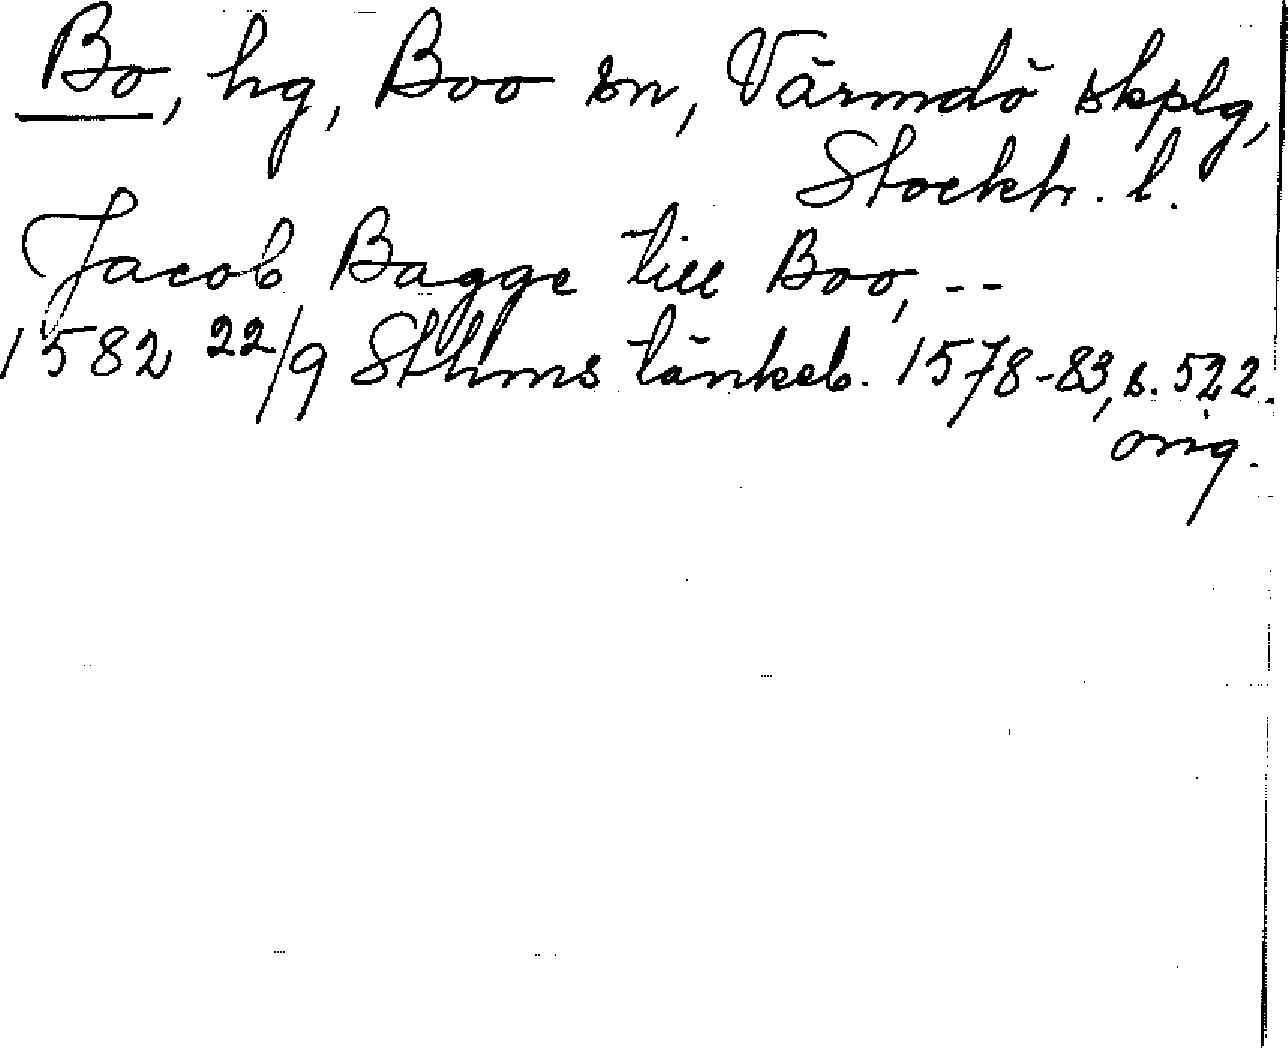 Bo, hg, Boo sn, Värmdö skplg,
Stockh. l.
Jacob Bagge till Boo, --
1582 22/9 Sthms tänkeb. 1578-83, s. 522.
orig.